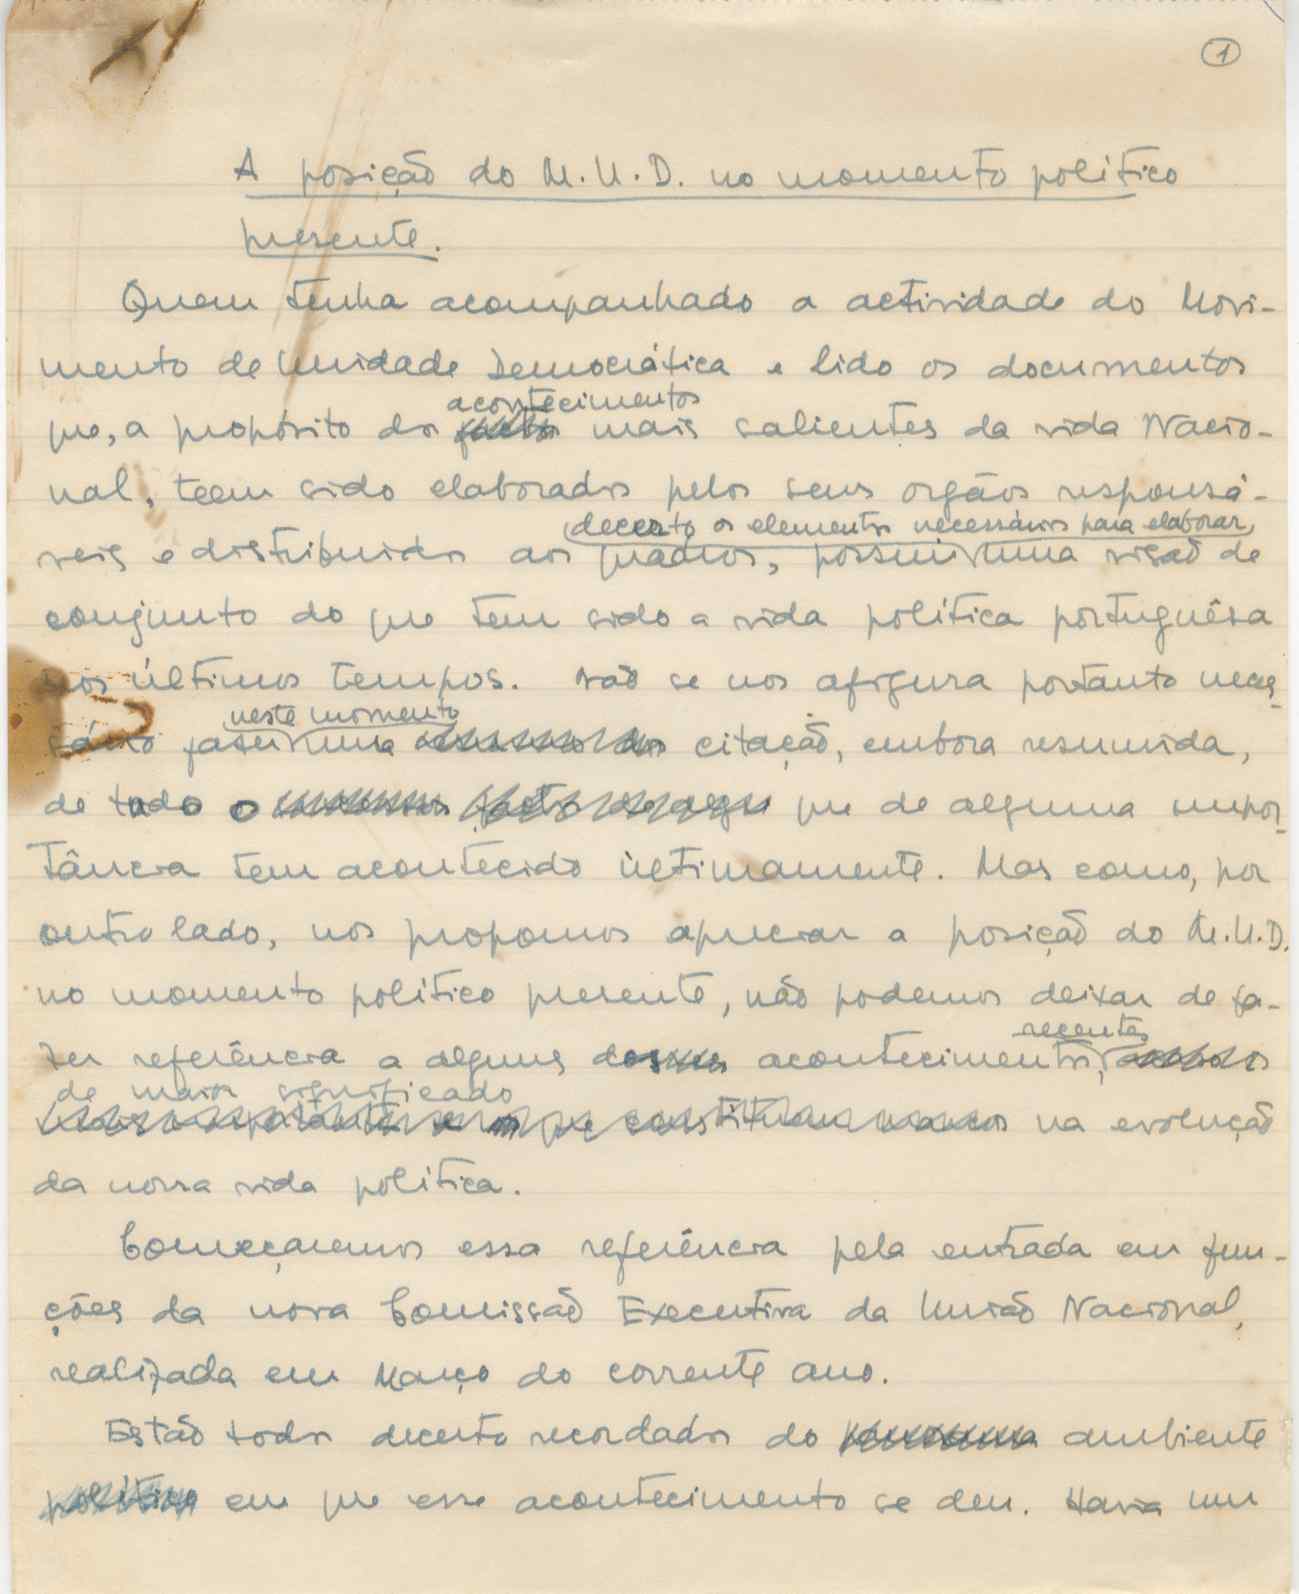 1
A posição do M.U.D. no momento político
presente.
Quem tenha acompanhado a actividade do Movi-
mento de Unidade Democrática e lido os documentos
acontecimentos
que, a propósito dos factos mais salientes da vida Nacio-
nal, teem sido elaborados pelos seus orgãos responsá-
decerto os elementos necessários para elaborar
veis e distribuidos aos quadros, possui uma visão de
conjunto do que tem sido a vida política portuguêsa
nos últimos tempos. Não se nos afigura portanto neces-
neste momento
sário fazer uma citação, embora resumida,
de tudo o que de alguma impor-
tância tem acontecido últimamente. Mas como, por
outro lado, nos propomos apreciar a posição do M.U.D.
no momento político presente, não podemos deixar de fa-
recentes
zer referência a alguns acontecimentos,
de maior significado
na evolução
da nossa vida política.
Começaremos essa referência pela entrada em fun-
ções da nova Comissão Executiva da União Nacional,
realizada em Março do corrente ano.
Estão todos decerto recordados do ambiente
político em que esse acontecimento se deu. Havia um